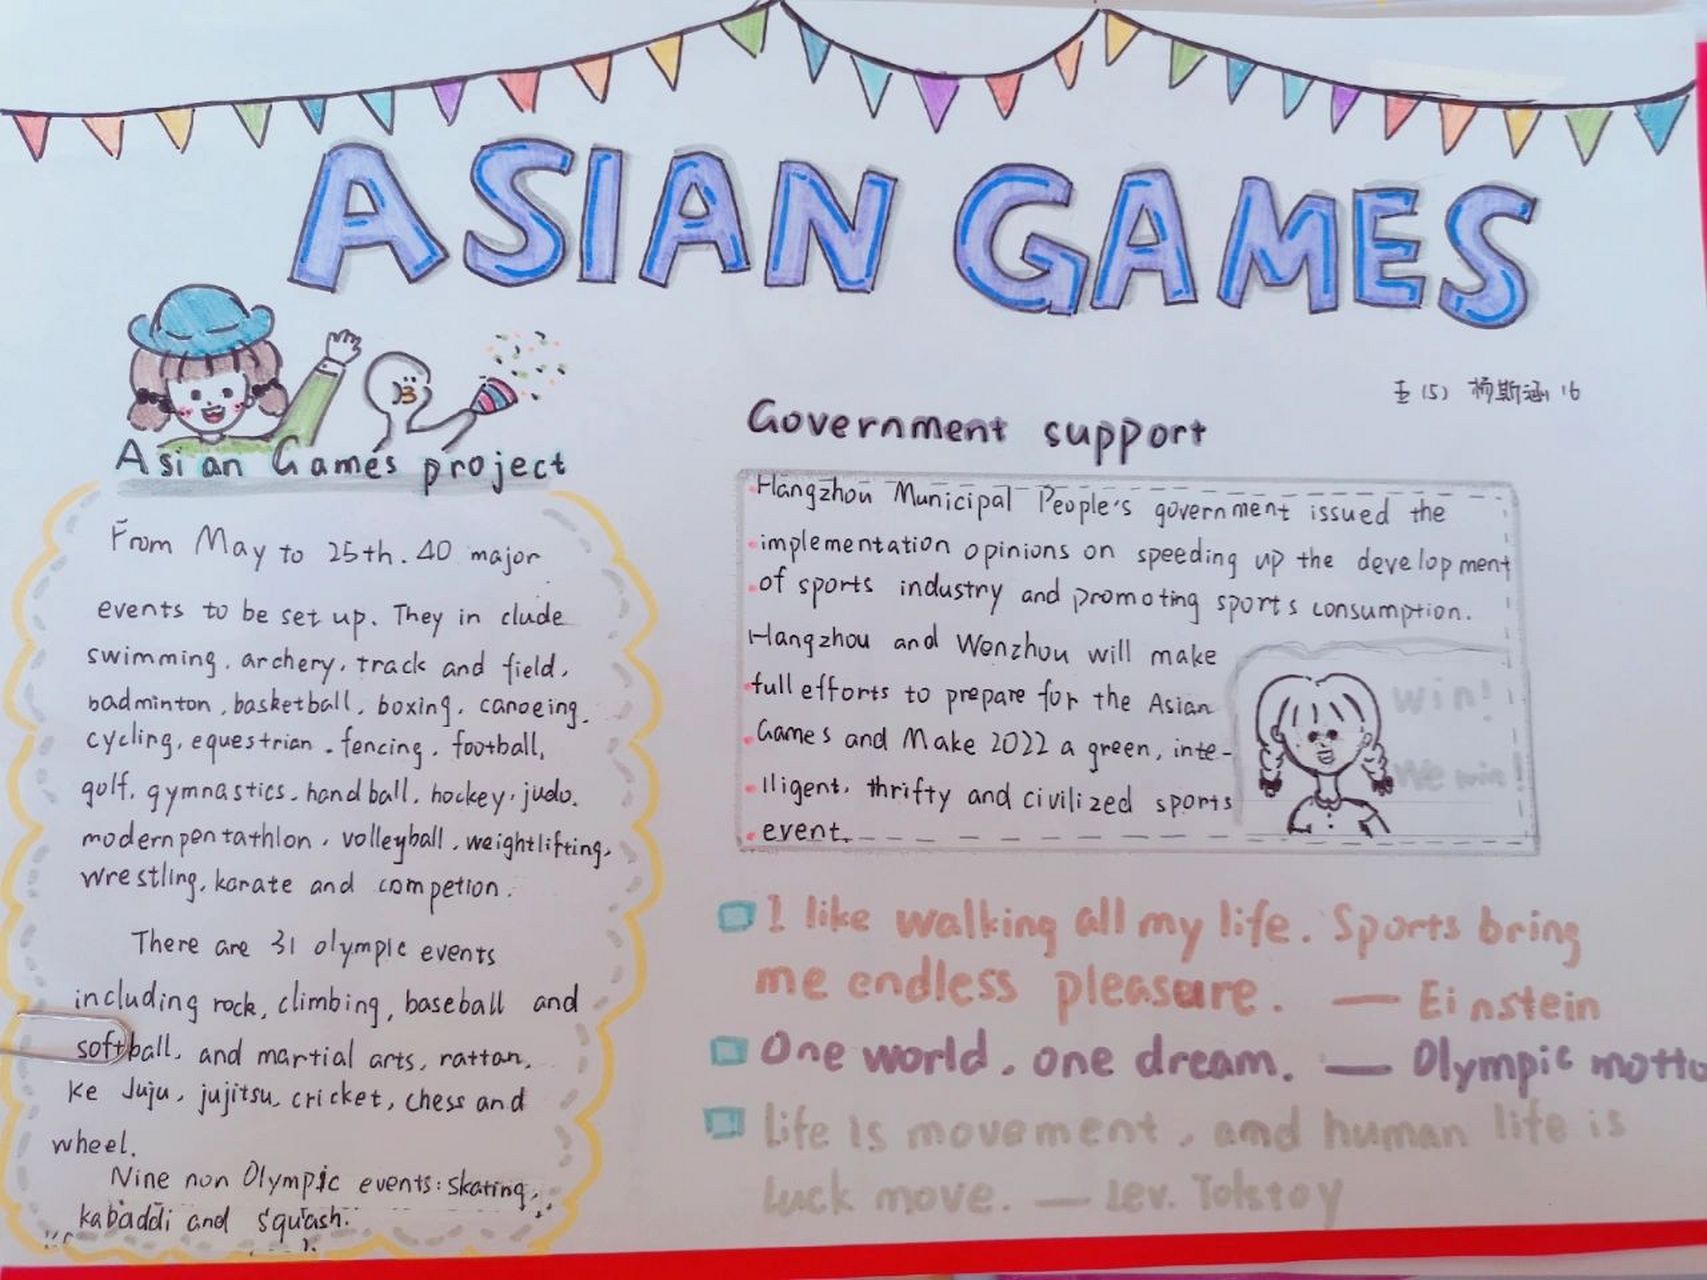 ASIAN GAMES
五(5) 杨斯涵 16
Asian Games project
From May to 25th. 40 major
events to be set up. They in clude
swimming. archery. track and field.
badminton. basketball. boxing. canoeing.
cycling. equestrian. fencing. football.
golf. gymnastics. hand ball. hockey. judo.
modern pentathlon. volleyball. weightlifting.
wrestling. karate and competion.
There are 31 olympic events
including rock, climbing, baseball and
softball. and martial arts, rattan.
ke Juju. jujitsu. cricket, chess and
wheel.
Nine non Olympic events: skating.
kabaddi and squash.
Government support
Hangzhou Municipal People's government issued the
implementation opinions on speeding up the development
of sports industry and promoting sports consumption.
Hangzhou and Wenzhou will make
full efforts to prepare for the Asian
Games and Make 2022 a green, inte-
lligent. thrifty and civilized sports
event.
win!
We win!
I like walking all my life. Sports bring
me endless pleasure. — Einstein
One world. one dream. — Olympic motto
Life is movement, and human life is
luck move. — Lev. Tolstoy